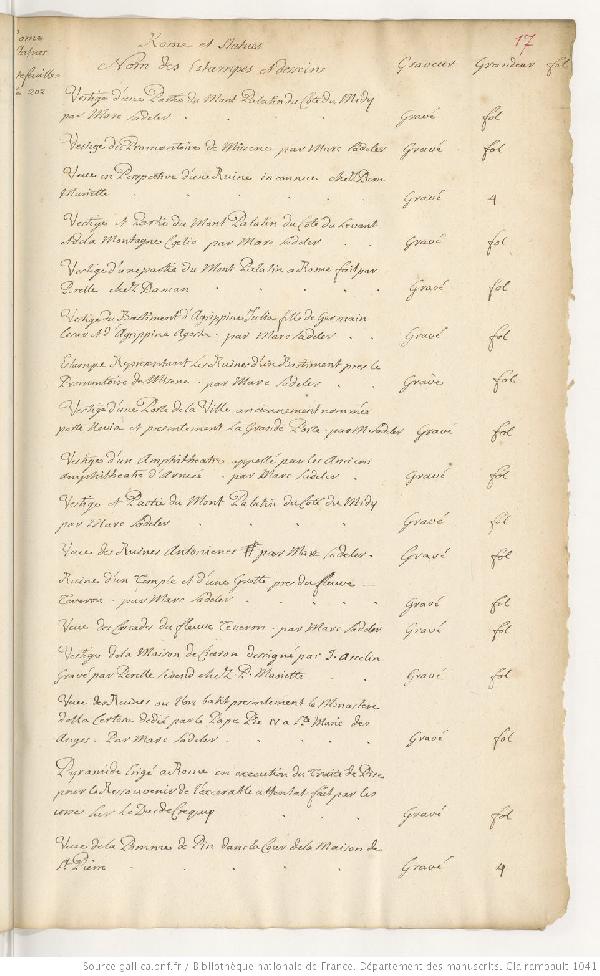 17
Rome et Statues
Nom des Estampes et desseins Graveur Grandeur fol
Rome
Statues
202
Vestige d'une Partie du Mont Palatin du Coté du Midy
par Marc Sadeler Gravé fol
Vestige du Promontoire de Misene par Marc Sadeler Gravé fol
Veue en Perspective d'une Ruine inconnue chez Pierre
Mariette Gravé 4
Vestige et Partie du Mont Palatin du Coté du Levant
et de la Montagne Coelio par Marc Sadeler Gravé fol
Vestige d'une partie du Mont Palatin a Rome fait par
Perelle chez Daman Gravé fol
Vestige du Bastiment d'Agrippine Julia fille de Germain
par Marc Sadeler Gravé fol
Estampe Representant les Ruines d'un Bastiment pres le
Promontoire de Misene par Marc Sadeler Gravé fol
Vestige d'une Porte de la Ville anciennement nommée
porte et presentement la Grande Porte par M Sadeler Gravé fol
Vestige d'un Amphitheatre appellé par les Anciens
amphitheatre par Marc Sadeler Gravé fol
Vestige et Partie du Mont Palatin du Coté du Midy
par Marc Sadeler Gravé fol
Veue des Ruines Antonienes par Marc Sadeler Gravé fol
Ruine d'un Temple et d'une Grotte pres du fleuve
par Marc Sadeler Gravé fol
Veue des Cascades du fleuve Teveron par Marc Sadeler Gravé fol
Vestige de la Maison de Ciceron designé par J. Asselin
Gravé par Perelle se vend chez P. Mariette Gravé fol
Veue des Ruines ou l'on batit presentement le Monastere
della Certosa dedié par le Pape Pie IV a Ste Marie des
Anges Par Marc Sadeler Gravé fol
Pyramide Erigé a Rome en execution du Traité de Pise
pour le Ressouvenir de l'execrable attentat fait par les
corses sur le Duc de Crequy Gravé fol
Veue de la Pomme de Pin dans la Cour de la Maison de
St Pierre Gravé 4
Source gallica.bnf.fr / Bibliothèque nationale de France. Département des manuscrits. Clairambault 1041